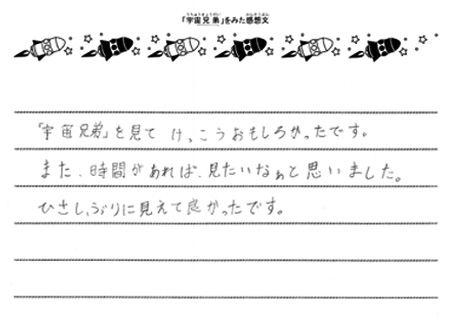 「宇宙兄弟」をみた感想文
「宇宙兄弟」を見て けっこうおもしろかったです。
また、時間があれば、見たいなぁと思いました。
ひさしぶりに見えて良かったです。